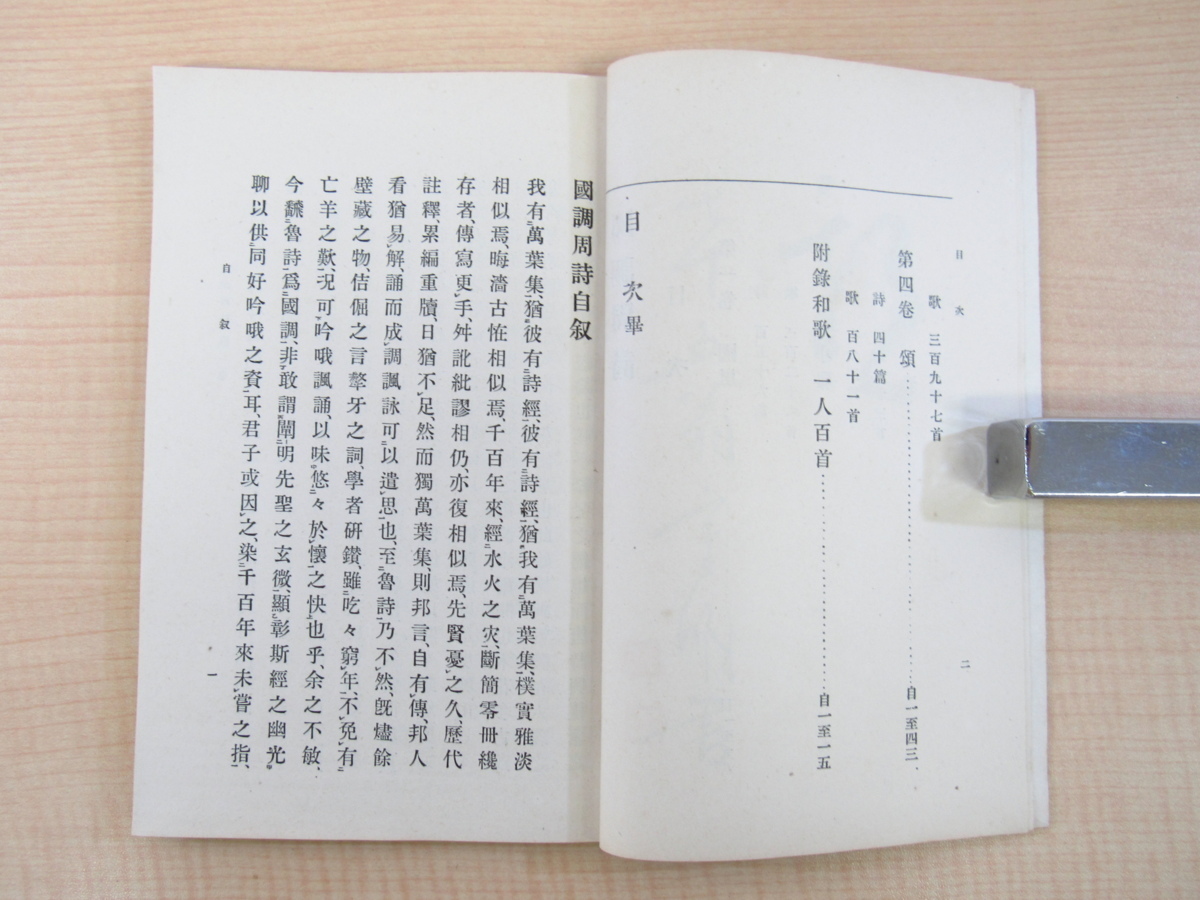 目次
歌 三百九十七首
第四卷 頌……………自一至四三
詩 四十篇
歌 百八十一首
附錄和歌 一人百首……………自一至一五
目次畢
二
國調周詩自叙
我有萬葉集、猶彼有詩經、彼有詩經、猶我有萬葉集、樸實雅淡
相似焉、晦濇古恠相似焉、千百年來、經水火之灾、斷簡零冊纔
存者、傳寫更手、舛訛紕謬相仍、亦復相似焉、先賢憂之久、歷代
註釋、累編重牘、日猶不足、然而獨萬葉集、則邦言、自有傳、邦人
看猶易解、誦而成調諷詠可以遣思也、至魯詩乃不然、既燼餘
壁藏之物、佶倔之言聱牙之詞、學者研鑚、雖吃々窮年、不免有
亡羊之歎、况可吟哦諷誦、以味悠々於懷之快也乎、余之不敏、
今飜魯詩爲國調、非敢謂闡明先聖之玄微、顯彰斯經之幽光
聊以供同好吟哦之資耳、君子或因之、染千百年來未嘗之指、
自叙
一